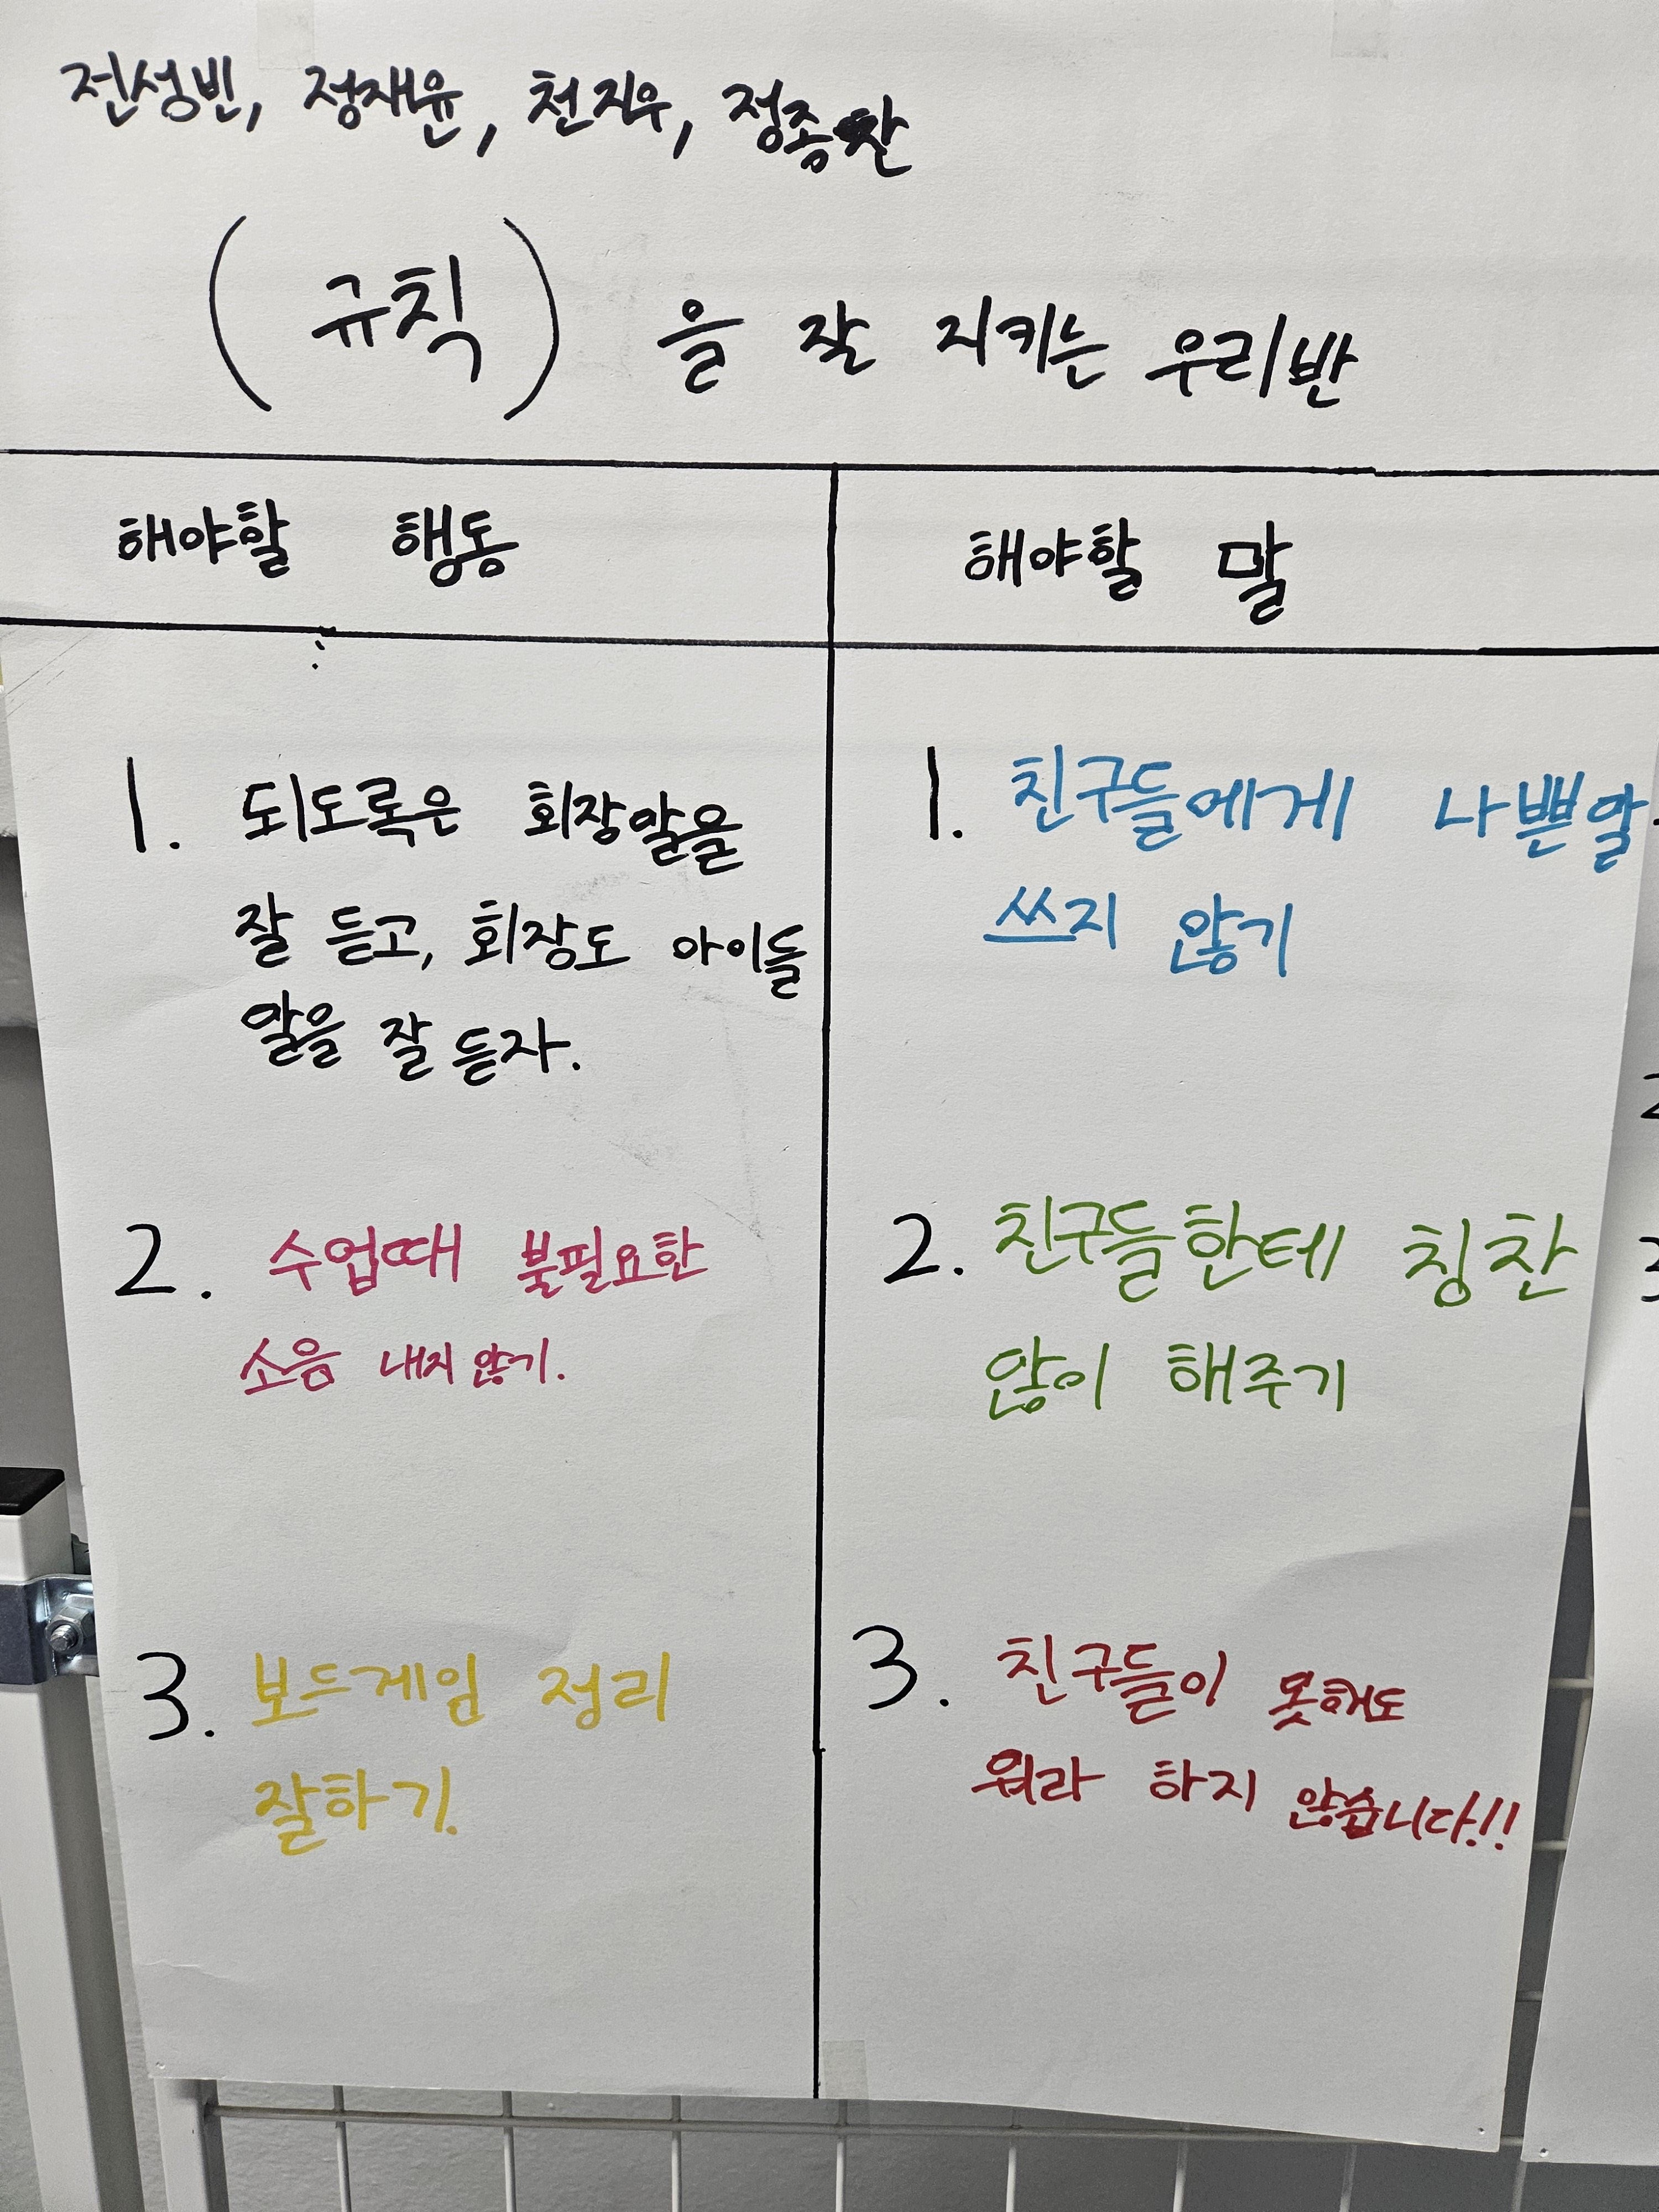 전성빈, 정재윤, 천지우, 정종찬
(규칙)을 잘 지키는 우리반
해야할 행동
해야할 말
1. 되도록은 회장말을
잘 듣고, 회장도 아이들
말을 잘 듣자.
2. 수업때 불필요한
소음 내지 않기.
3. 보드게임 정리
잘하기.
1. 친구들에게 나쁜말
쓰지 않기
2. 친구들한테 칭찬
많이 해주기
3. 친구들이 못해도
뭐라 하지 않습니다!!